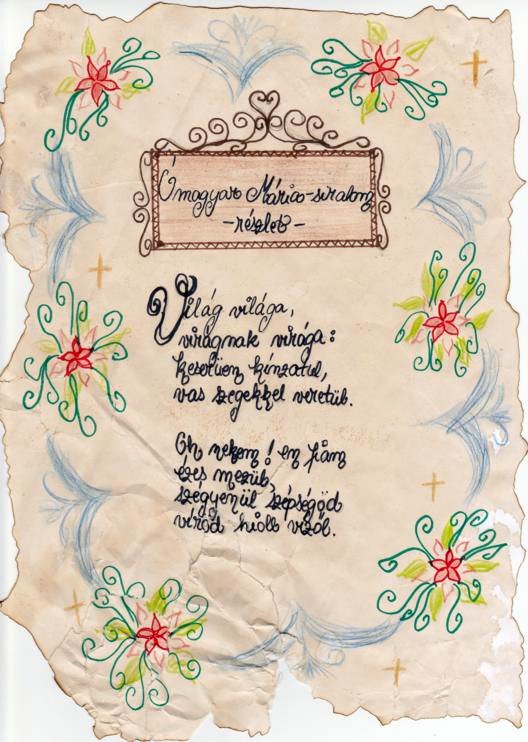 Ómagyar Mária-siralom
-részlet-
Világ világa,
virágnak virága:
keserüen kínzatul,
vas szegekkel veretül.
Oh nekem! en fiam
ézes mezüll,
szégyenül szépségöd
véröd hioll vizöl.